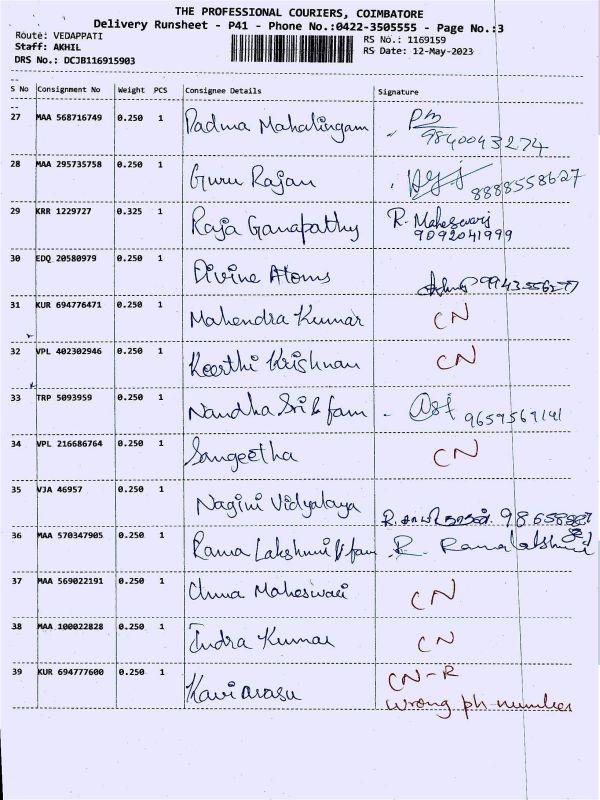 THE PROFESSIONAL COURIERS, COIMBATORE
Delivery Runsheet - P41 - Phone No.:0422-3505555 - Page No.:3
Route: VEDAPPATI
Staff: AKHIL
DRS No.: DCJB116915903
RS No.: 1169159
RS Date: 12-May-2023
S No Consignment No Weight PCS Consignee Details Signature
27 MAA 568716749 0.250 1 Padma Mahalingam Pm
9840043274
28 MAA 295735758 0.250 1 Guru Rajan 8888558627
29 KRR 1229727 0.325 1 Raja Ganapathy R. Maheswari
9092041999
30 EDQ 20580979 0.250 1 Divine Atoms 9943556277
31 KUR 694776471 0.250 1 Mahendra Kumar CN
32 VPL 402302946 0.250 1 Keerthi Krishnan CN
33 TRP 5093959 0.250 1 Nandha Sri & fam 9659569141
34 VPL 216686764 0.250 1 Sangeetha CN
35 VJA 46957 0.250 1 Nagini Vidyalaya R.
36 MAA 570347905 0.250 1 Rama Lakshmi & fam R. Ramalakshmi
37 MAA 569022191 0.250 1 Uma Maheswari CN
38 MAA 100022828 0.250 1 Indra Kumar CN
39 KUR 694777600 0.250 1 Kaviarasu CN-R
wrong ph number